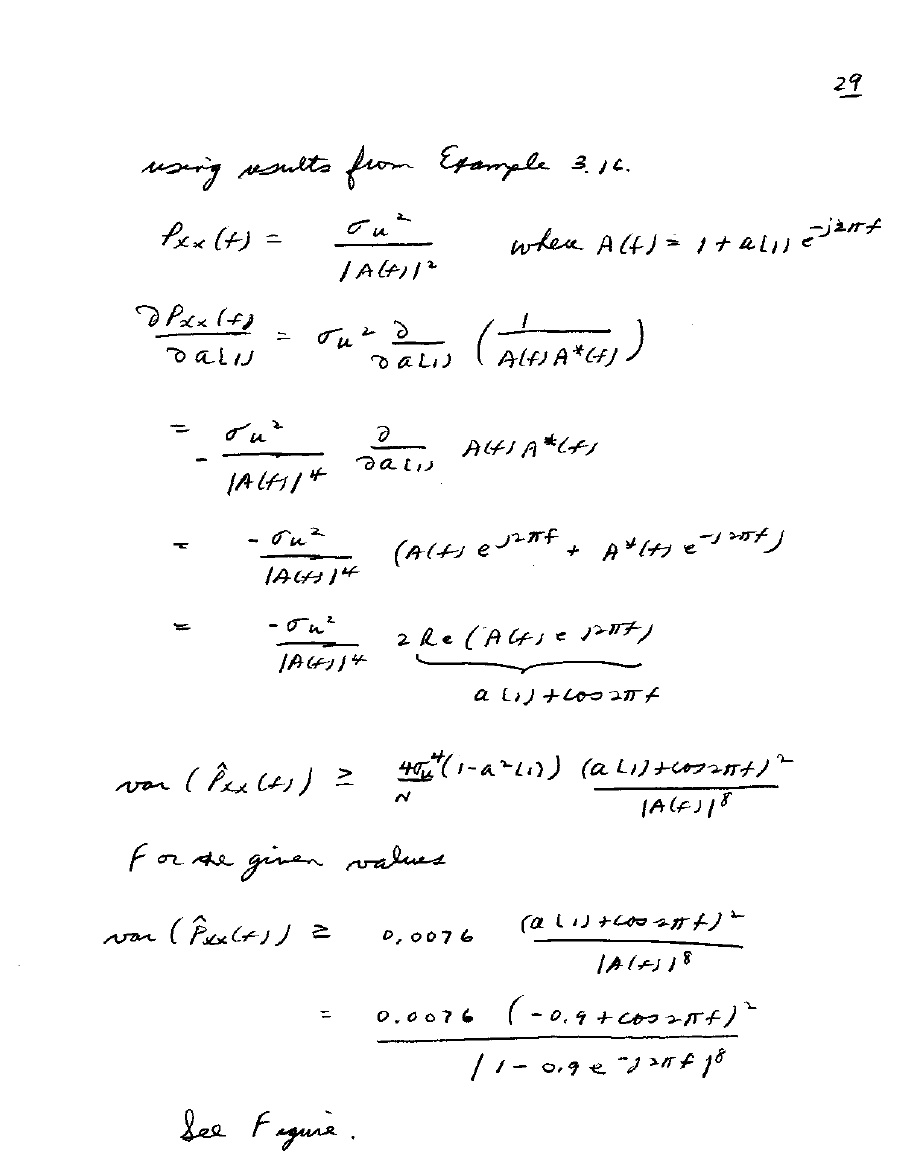 29
using results from Example 3.16.
Pxx(f) = σu² / |A(f)|² where A(f) = 1 + a[1] e^{-j2πf}
∂Pxx(f) / ∂a[1] = σu² ∂/∂a[1] ( 1 / A(f)A*(f) )
= - σu² / |A(f)|⁴ ∂/∂a[1] A(f)A*(f)
= -σu² / |A(f)|⁴ (A(f) e^{j2πf} + A*(f) e^{-j2πf})
= -σu² / |A(f)|⁴ 2 Re (A(f) e^{j2πf})
a[1] + cos 2πf
var (P̂xx(f)) ≥ 4σu⁴/N (1-a²[1]) (a[1] + cos 2πf)² / |A(f)|⁸
For the given values
var (P̂xx(f)) ≥ 0.0076 (a[1] + cos 2πf)² / |A(f)|⁸
= 0.0076 (-0.9 + cos 2πf)² / |1 - 0.9 e^{-j2πf}|⁸
See Figure.